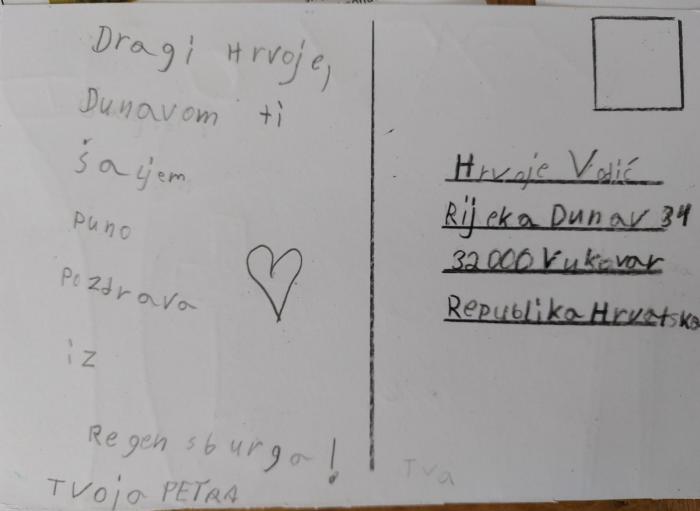 Dragi Hrvoje,
Dunavom ti
šaljem
puno
pozdrava
iz
Regensburga!
Tvoja PETRA
Hrvoje Vodić
Rijeka Dunav 34
32000 Vukovar
Republika Hrvatska
Tva